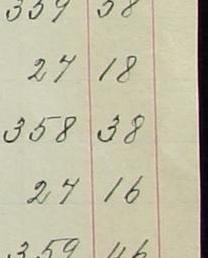 359 58
27 18
358 38
27 16
359 46